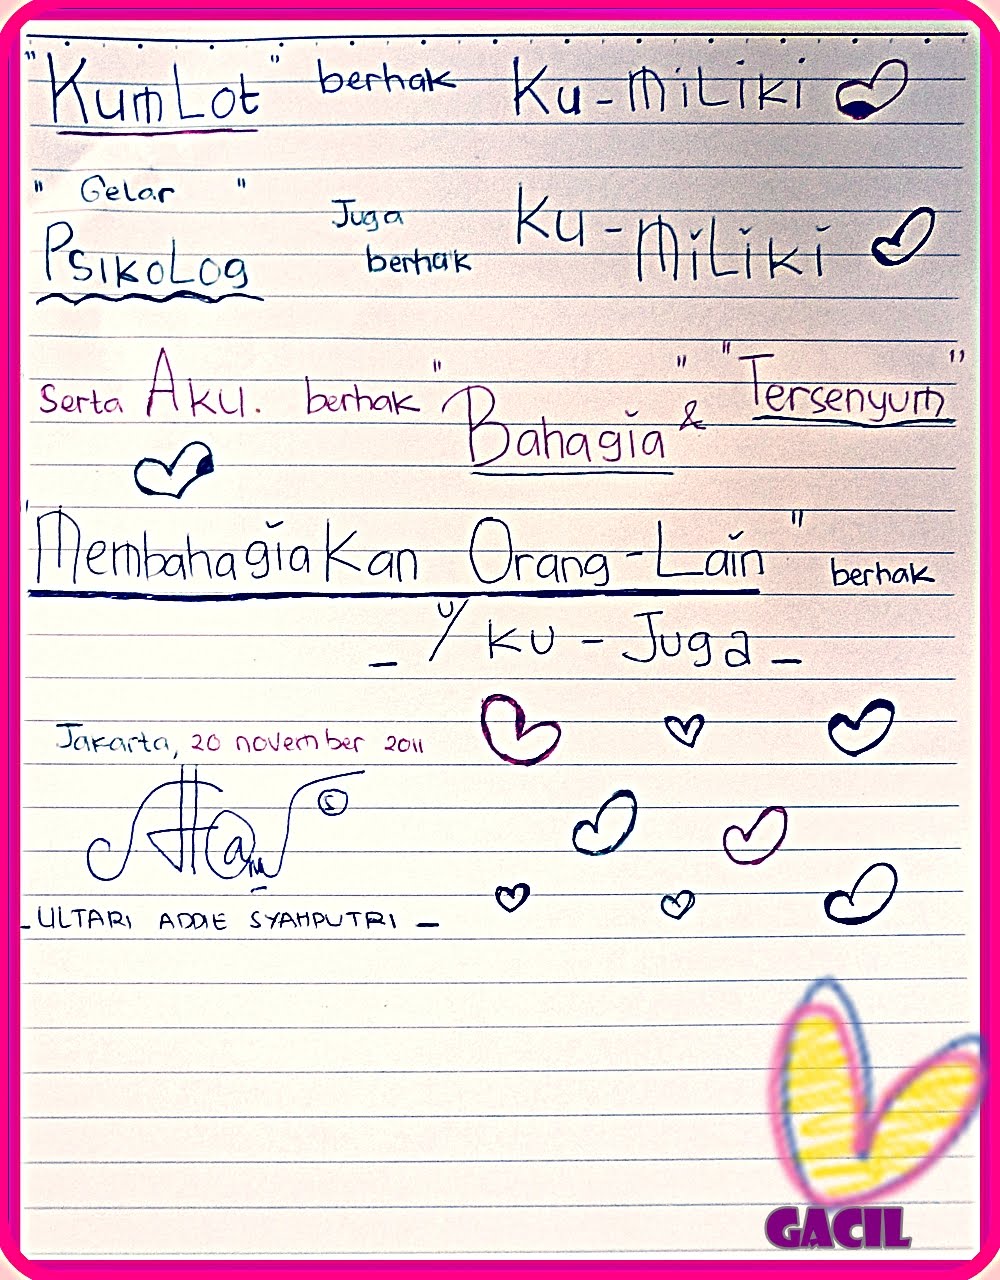 "KumLot" berhak Ku-MiLiki
"Gelar" Juga Ku-MiLiki
PsikoLog berhak
Serta Aku. berhak "Bahagia" & "Tersenyum"
"MembahagiaKan Orang-Lain" berhak
- u/ Ku - Juga -
Jakarta, 20 november 2011
- ULTARI ADDIE SYAHPUTRI -
GACIL